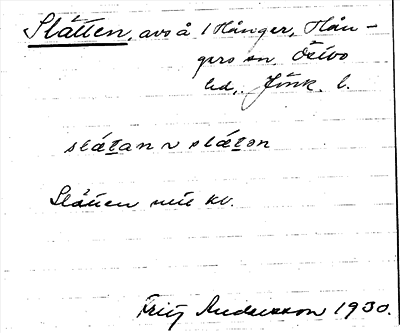 Slåtten, avs å 1 Hånger, Hån-
gers sn Östbo
hd, Jönk. l.
slåtan ~ slåton
Slåtten
kv.
Fritz Andersson 1930.